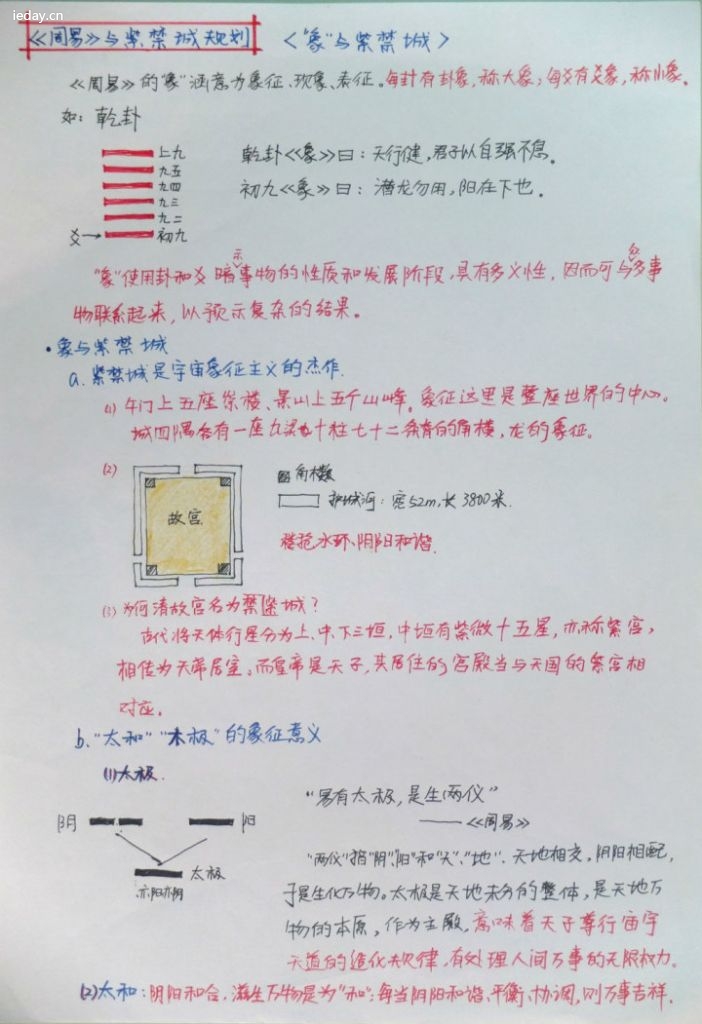 ieday.cn
《周易》与紫禁城规划 <"象"与紫禁城>
《周易》的"象"涵意为象征、现象、表征。每卦有卦象,称大象;每爻有爻象,称小象。
如:乾卦
上九
九五
九四
九三
九二
爻→ 初九
乾卦《象》曰:天行健,君子以自强不息。
初九《象》曰:潜龙勿用,阳在下也。
"象"使用卦和爻暗示事物的性质和发展阶段,具有多义性,因而可与众多事
物联系起来,以预示复杂的结果。
·象与紫禁城
a.紫禁城是宇宙象征主义的杰作.
(1)午门上五座崇楼、景山上五个山峰。象征这里是整座世界的中心。
城四隅各有一座九梁十柱七十二条脊的角楼,龙的象征。
(2)
故宫
角楼
护城河:宽52m,长3800米.
水环、阴阳和谐.
(3)为何清故宫名为紫禁城?
古代将天体行星分为上、中、下三垣,中垣有紫微十五星,亦称紫宫,
相传为天帝居室。而皇帝是天子,其居住的宫殿当与天国的紫宫相
对应。
b."太和""太极"的象征意义
(1)太极.
阴 阳
太极
亦阳亦阴
"易有太极,是生两仪"
——《周易》
"两仪"指"阴"、"阳"和"天"、"地"、天地相交,阴阳相配,
于是生化万物。太极是天地未分的整体,是天地万
物的本原,作为主殿,意味着天子尊行宙宇
天道的造化规律,有处理人间万事的无限权力。
(2)太和:阴阳和合,滋生万物是为"和";每当阴阳和谐、平衡、协调,则万事吉祥.